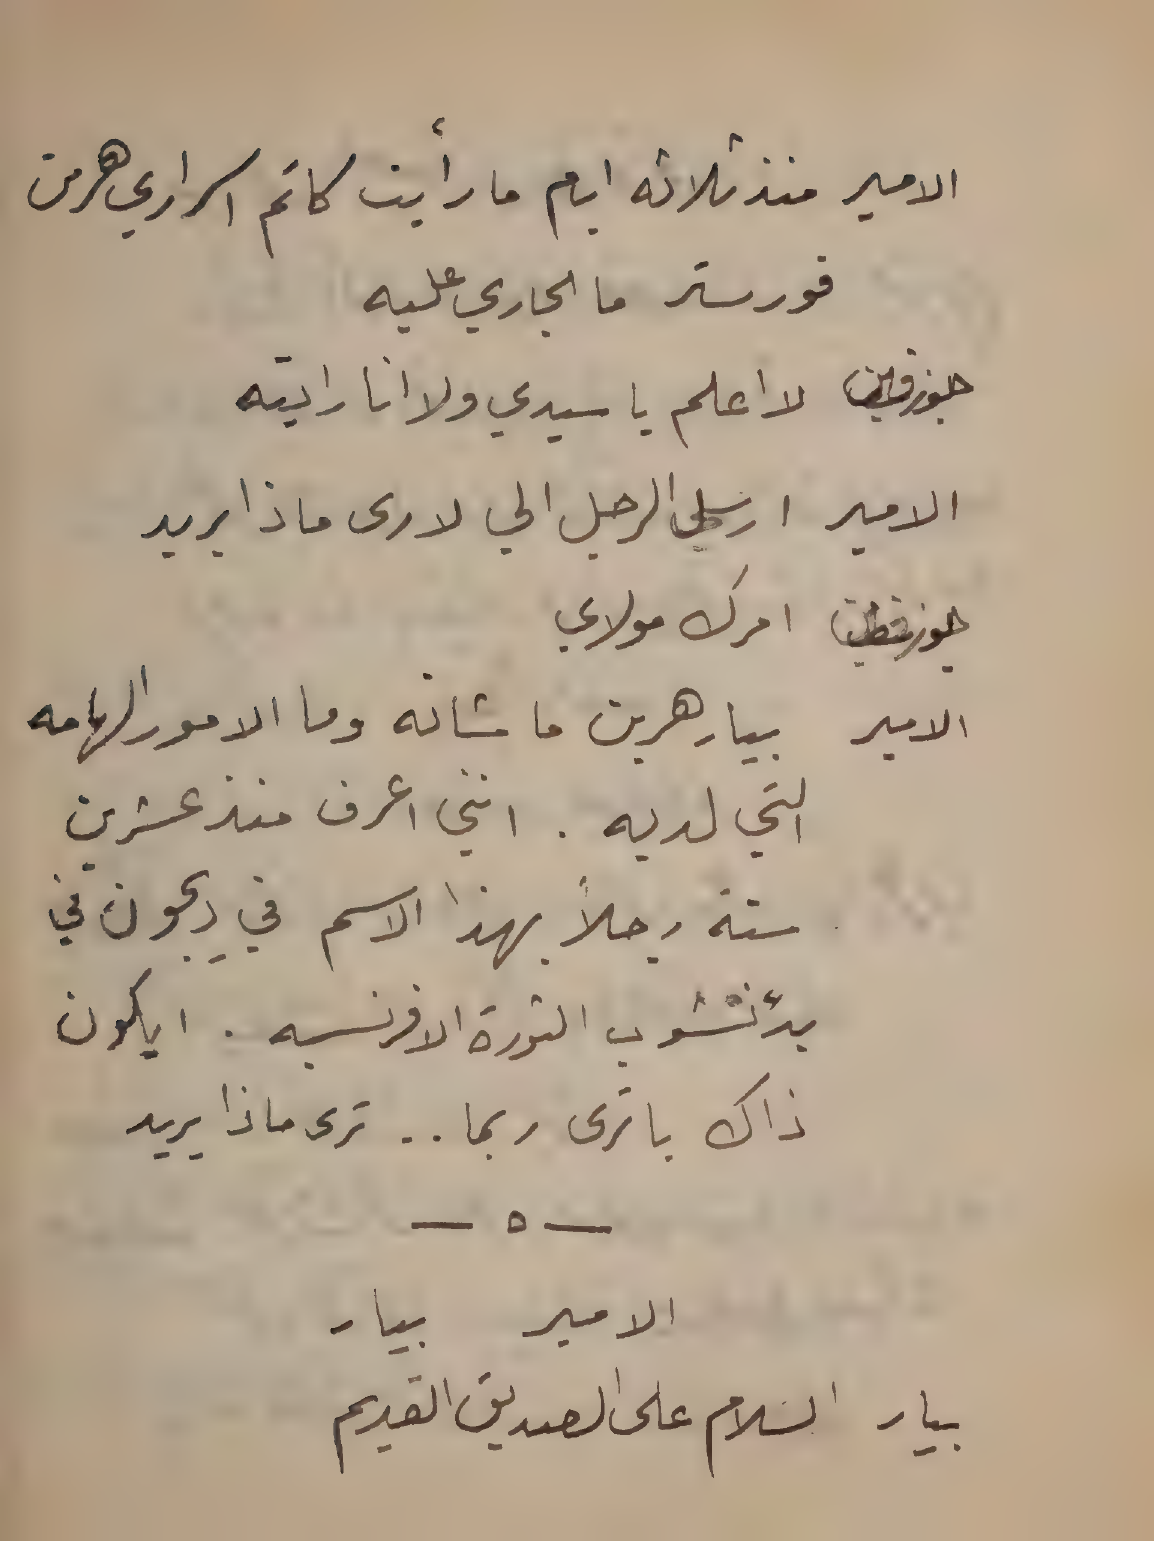 الامير منذ ثلاثه ايام ما رأيت كاتم اسراري هرمن
فورستر ما الجاري عليه
جوزفين لا اعلم يا سيدي ولا انا رايته
الامير ارسلي الرجل الي لارى ماذا يريد
امرك مولاي
الامير بيار هرين ما شانه وما الامور الهامه
التي لديه . انني اعرف منذ عشرين
سنة رجلاً بهذا الاسم في ديجون في
بدء نشوب الثورة الافرنسيه . ايكون
ذاك يا ترى ربما .. ترى ماذا يريد
— ٥ —
الامير بيار
بيار السلام على الصديق القديم